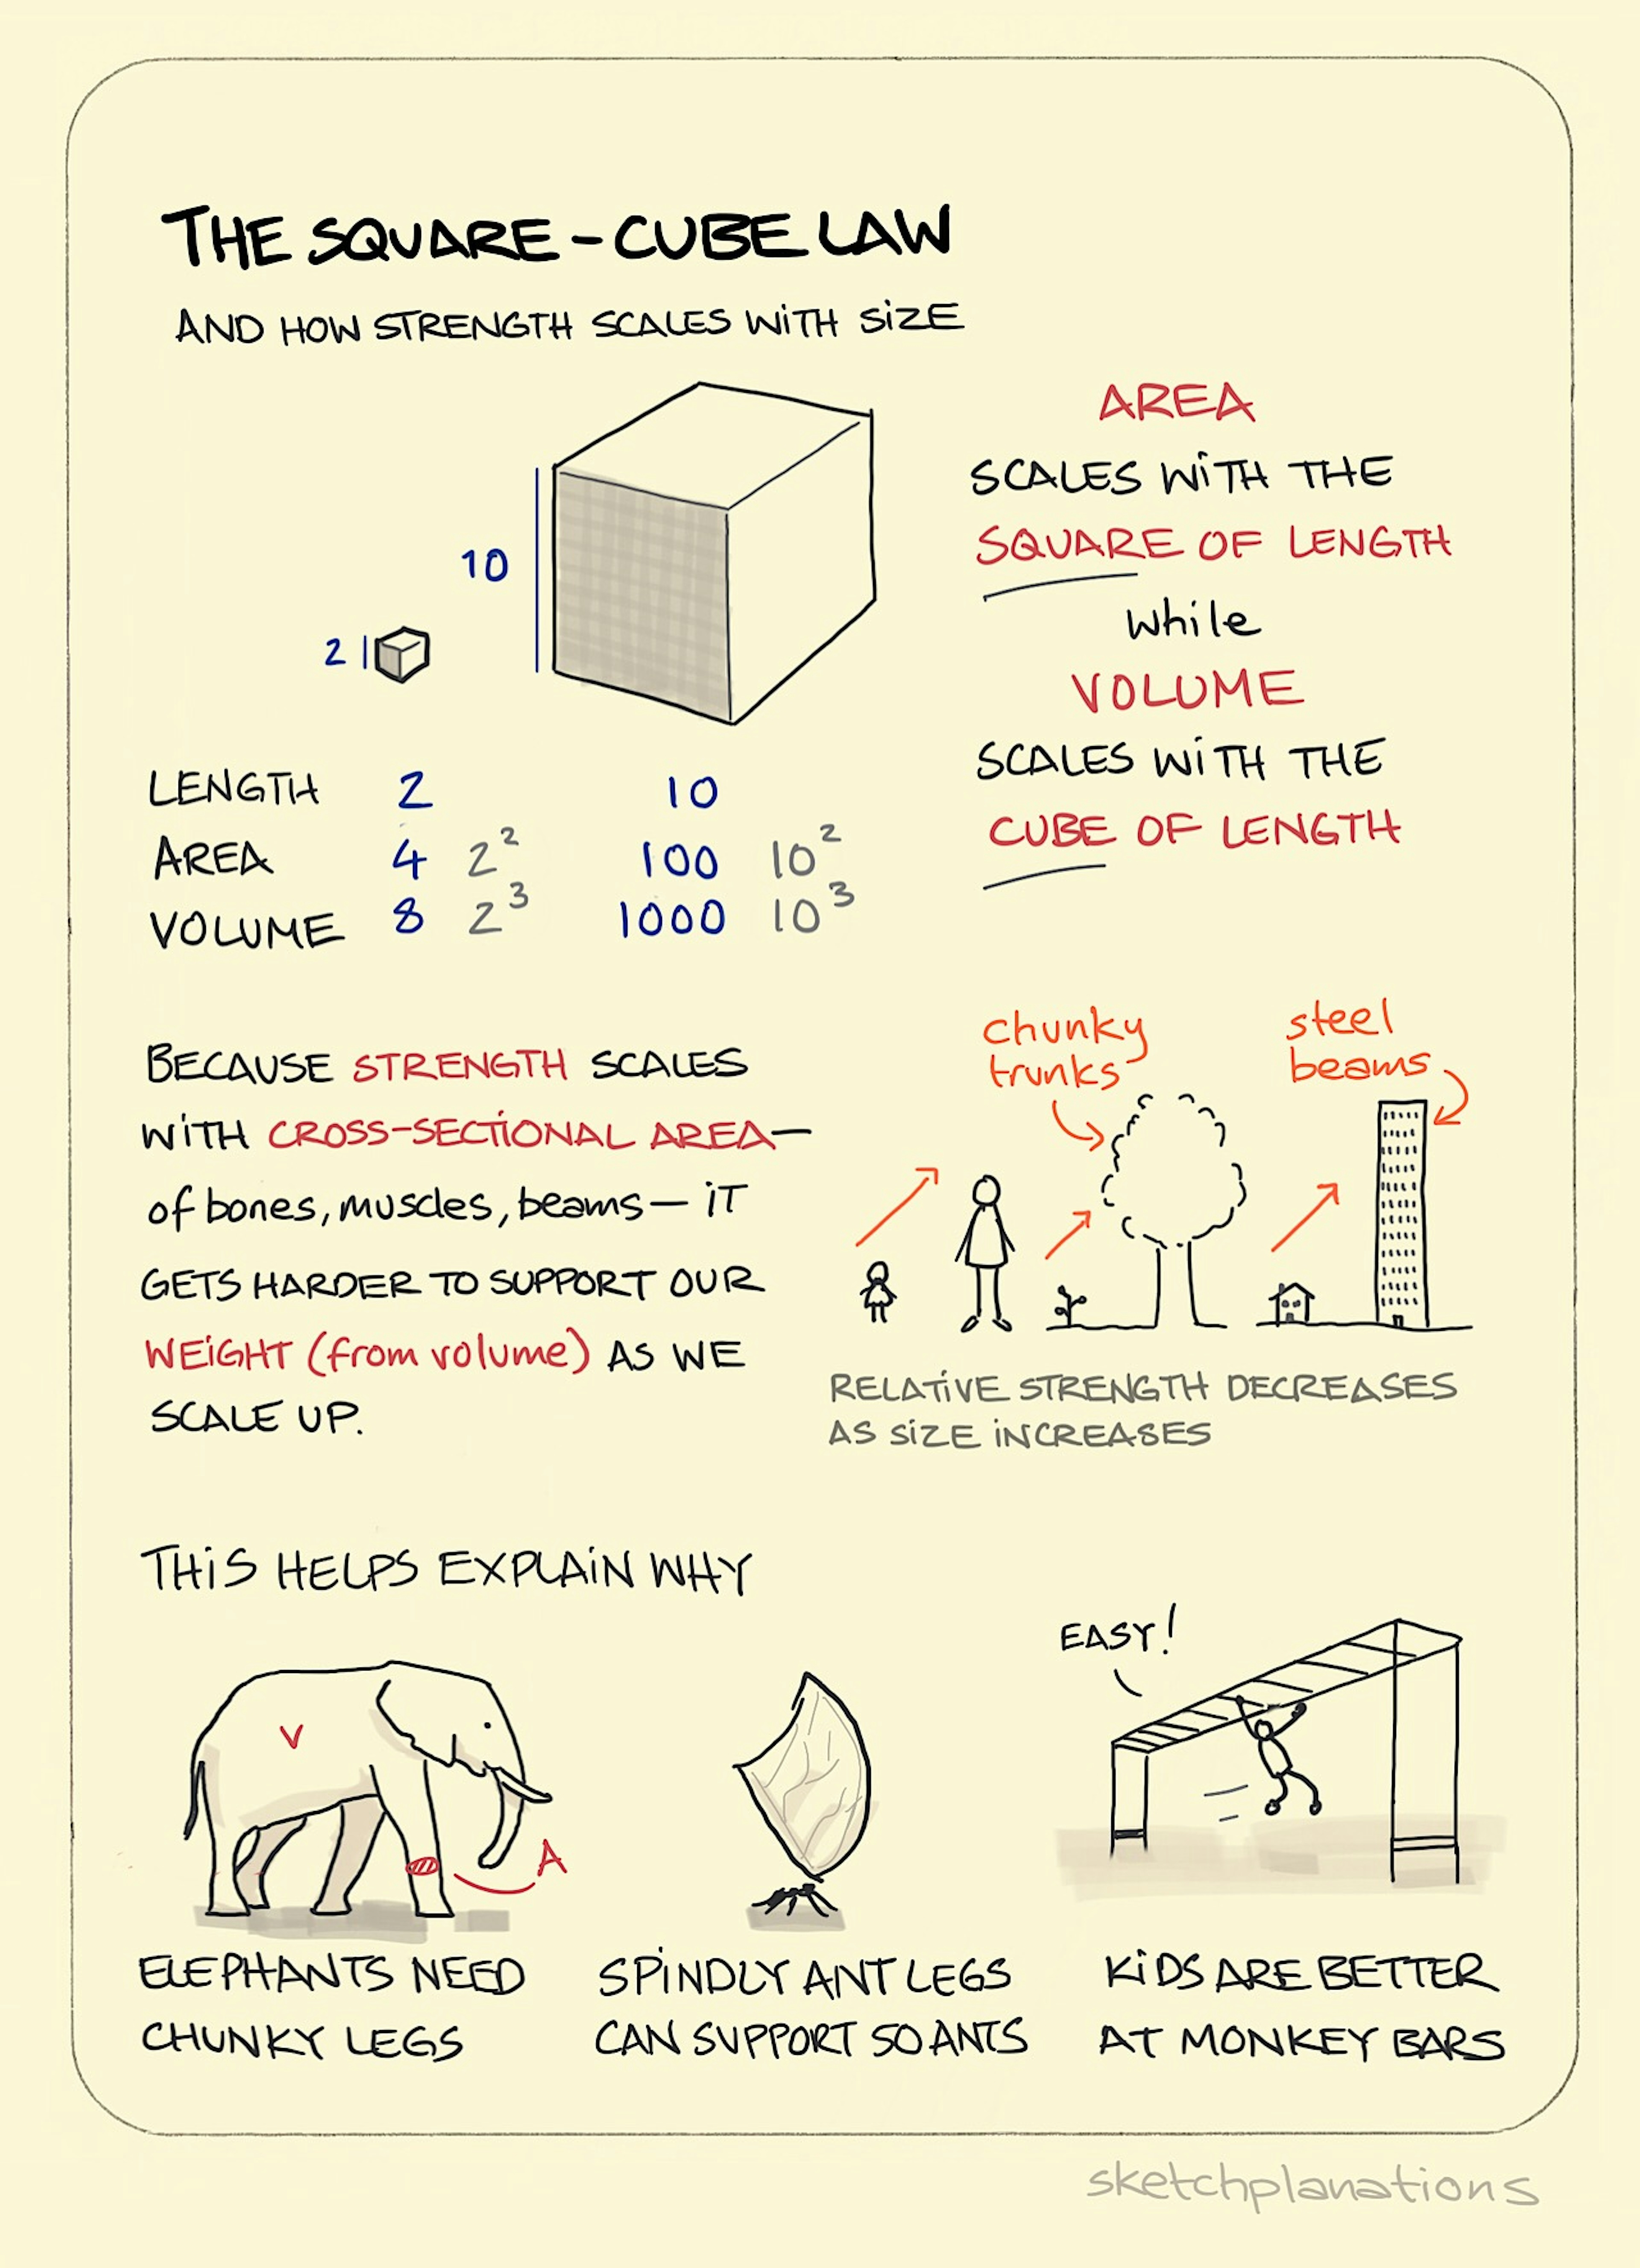 THE SQUARE-CUBE LAW
AND HOW STRENGTH SCALES WITH SIZE
10
2
LENGTH 2 10
AREA 4 2² 100 10²
VOLUME 8 2³ 1000 10³
AREA
SCALES WITH THE
SQUARE OF LENGTH
while
VOLUME
SCALES WITH THE
CUBE OF LENGTH
BECAUSE STRENGTH SCALES
WITH CROSS-SECTIONAL AREA—
of bones, muscles, beams— IT
GETS HARDER TO SUPPORT OUR
WEIGHT (from volume) AS WE
SCALE UP.
chunky
trunks
steel
beams
RELATIVE STRENGTH DECREASES
AS SIZE INCREASES
THIS HELPS EXPLAIN WHY
V
A
ELEPHANTS NEED
CHUNKY LEGS
SPINDLY ANT LEGS
CAN SUPPORT 50 ANTS
EASY!
KIDS ARE BETTER
AT MONKEY BARS
sketchplanations